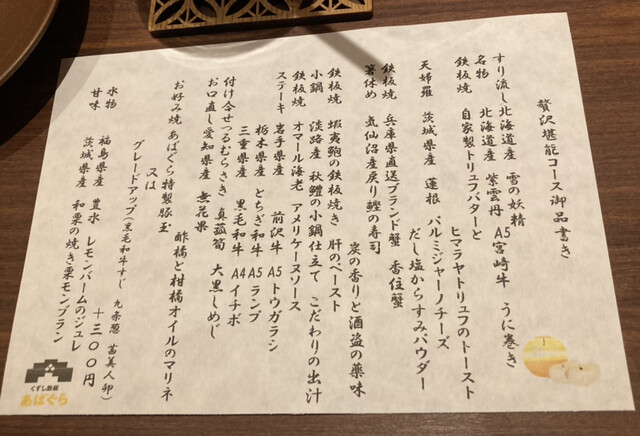 贅沢堪能コース御品書き
すり流し 北海道産 雪の妖精
名物 北海道産 紫雲丹 A5宮崎牛 うに巻き
鉄板焼 自家製トリュフバターと
ヒマラヤトリュフのトースト
天婦羅 茨城県産 蓮根 パルミジャーノチーズ
だし塩からすみパウダー
鉄板焼 兵庫県直送ブランド蟹 香住蟹
箸休め 気仙沼産戻り鰹の寿司
炭の香りと酒盗の薬味
鉄板焼 蝦夷鮑の鉄板焼き 肝のペースト
小鍋 淡路産 秋鱧の小鍋仕立て こだわりの出汁
鉄板焼 オマール海老 アメリケーヌソース
ステーキ 岩手県産 前沢牛 A5トウガラシ
栃木県産 とちぎ和牛 A5ランプ
三重県産 黒毛和牛 A4イチボ
付け合せつるむらさき 真菰筍 大黒しめじ
お口直し愛知県産 無花果
酢橘と柑橘オイルのマリネ
お好み焼 あばぐら特製豚玉
又は
グレードアップ(黒毛和牛すじ 九条葱 菖美人卵)
+300円
水物 福島県産 豊水 レモンバームのジュレ
甘味 茨城県産 和栗の焼き栗モンブラン
くずし鉄板
あばぐら